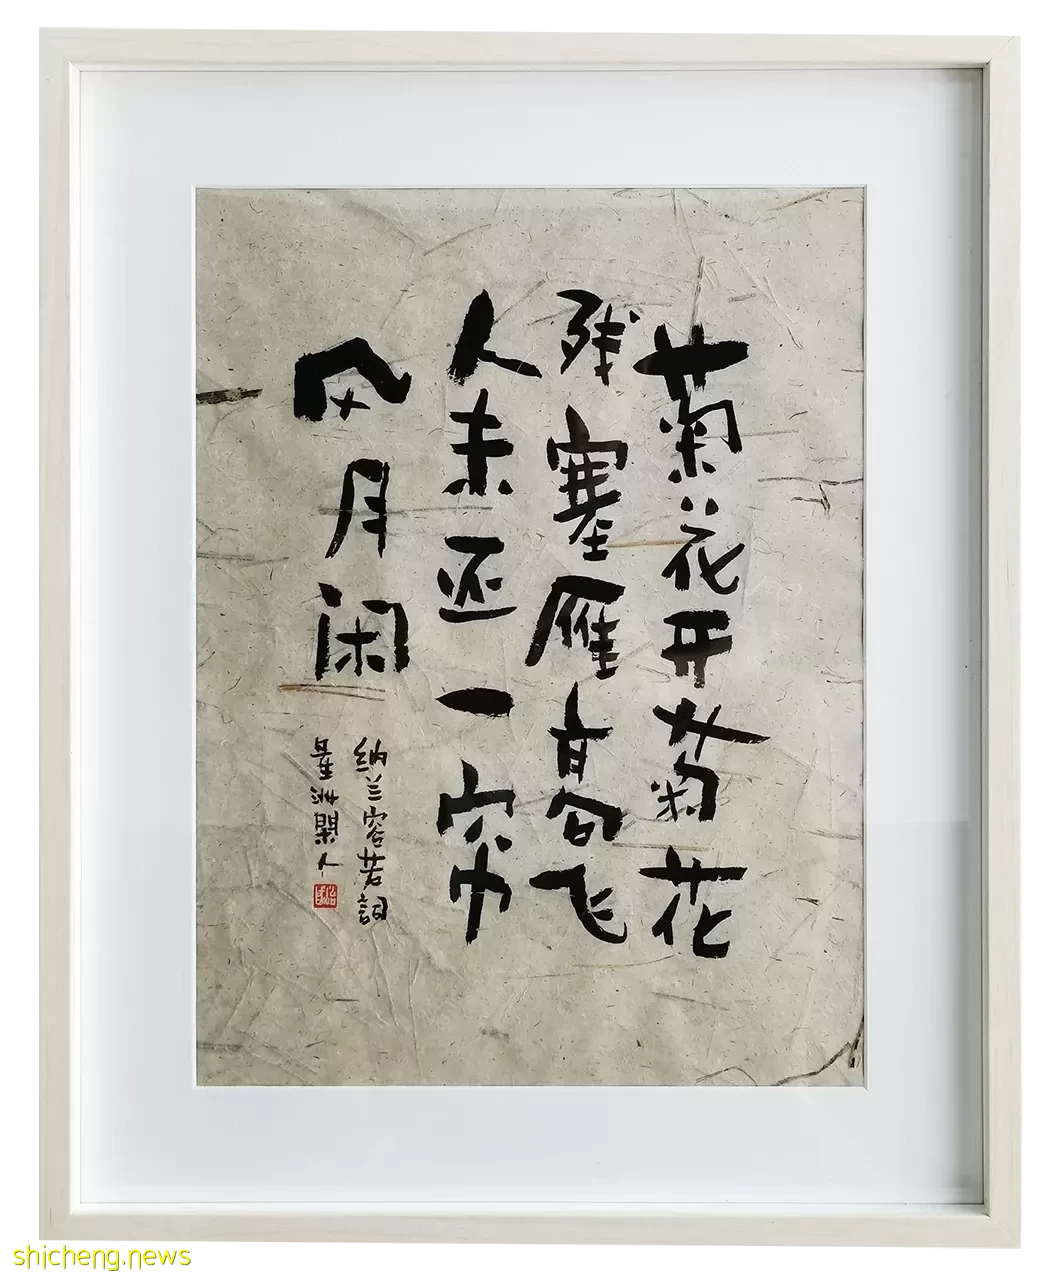 菊花开菊花
残塞雁高飞
人未还一帘
风月闲
纳兰容若詞
星洲閑人
shicheng.news